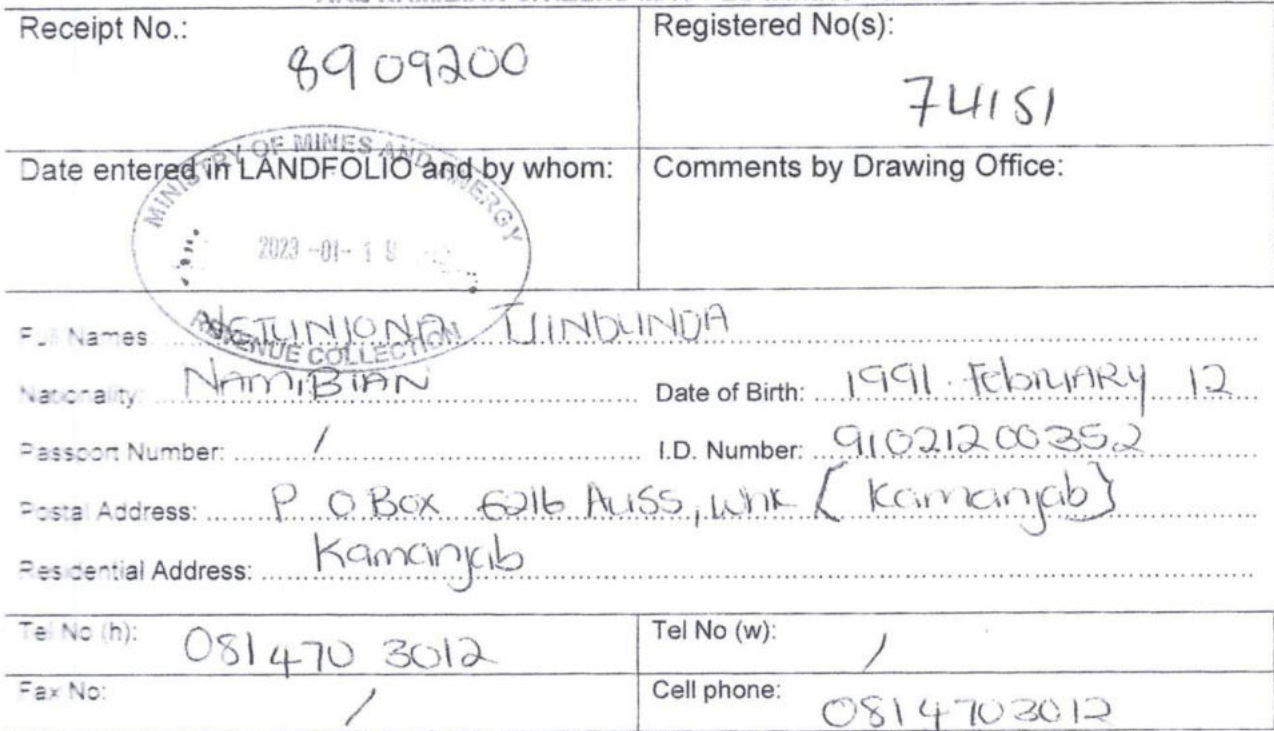 Receipt No.: 8909200
Registered No(s): 74151
Date entered in LANDFOLIO and by whom:
Comments by Drawing Office:
MINISTRY OF MINES AND ENERGY
2023-01-1
REVENUE COLLECTION
Full Names:
Nationality: NAMIBIAN
Date of Birth: 1991 February 12
Passport Number: /
I.D. Number: 91021200352
Postal Address: P O Box 6216 Auss, Whk (Kamanjab)
Residential Address: Kamanjab
Tel No (h): 081 470 3012
Tel No (w): /
Fax No: /
Cell phone: 0814703012